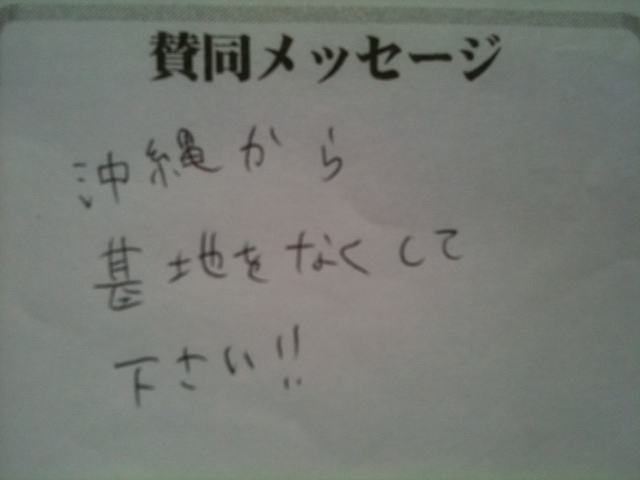 賛同メッセージ
沖縄から
基地をなくして
下さい!!